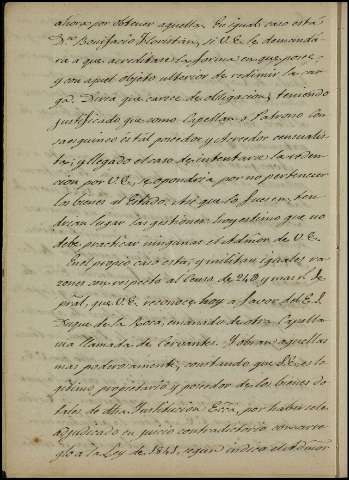 ahora por obtener aquella. En igual caso está
Dn. Bonifacio Floristán, si V.E. le demandá-
ra a que acreditase la forma en que posee,
y con aquel objeto ulterior de redimir la car-
ga. Dirá que carece de obligacion, teniendo
justificado que como Capellan o Patrono con-
sanguineo és tál poseedor y Acreedor censualis-
ta; y llegado el caso de intentarse la reden-
cion por V.E., se opondria por no pertenecer
los bienes al Estado. Asi que lo fuesen, ten-
drian lugar las gestiones: hoy estimo que no
debe practicar ningunas el Admor. de V.E.
En el propio caso está, y militan iguales ra-
zones con respecto al Censo de 240 y mas rl.
pral, que V.E. reconoce hoy a favor del E.S.
Duque de la Roca, emanado de otra Capella-
nia llamada de Cervantes. Y obran aquellas
mas poderosamente, constando que S.E. es le-
gitimo propietario y poseedor de los bienes do-
tales de dha. Institucion Ecca, por habersele
adjudicado en juicio contradictorio con arre-
glo a la Ley de 1841, segun indica el Admor